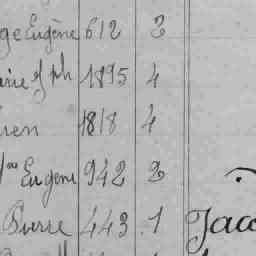 ge Eugène 612 2
arie Jph 1895 4
uen 1818 4
Eugene 942 2
Pierre 443 1 Jaco